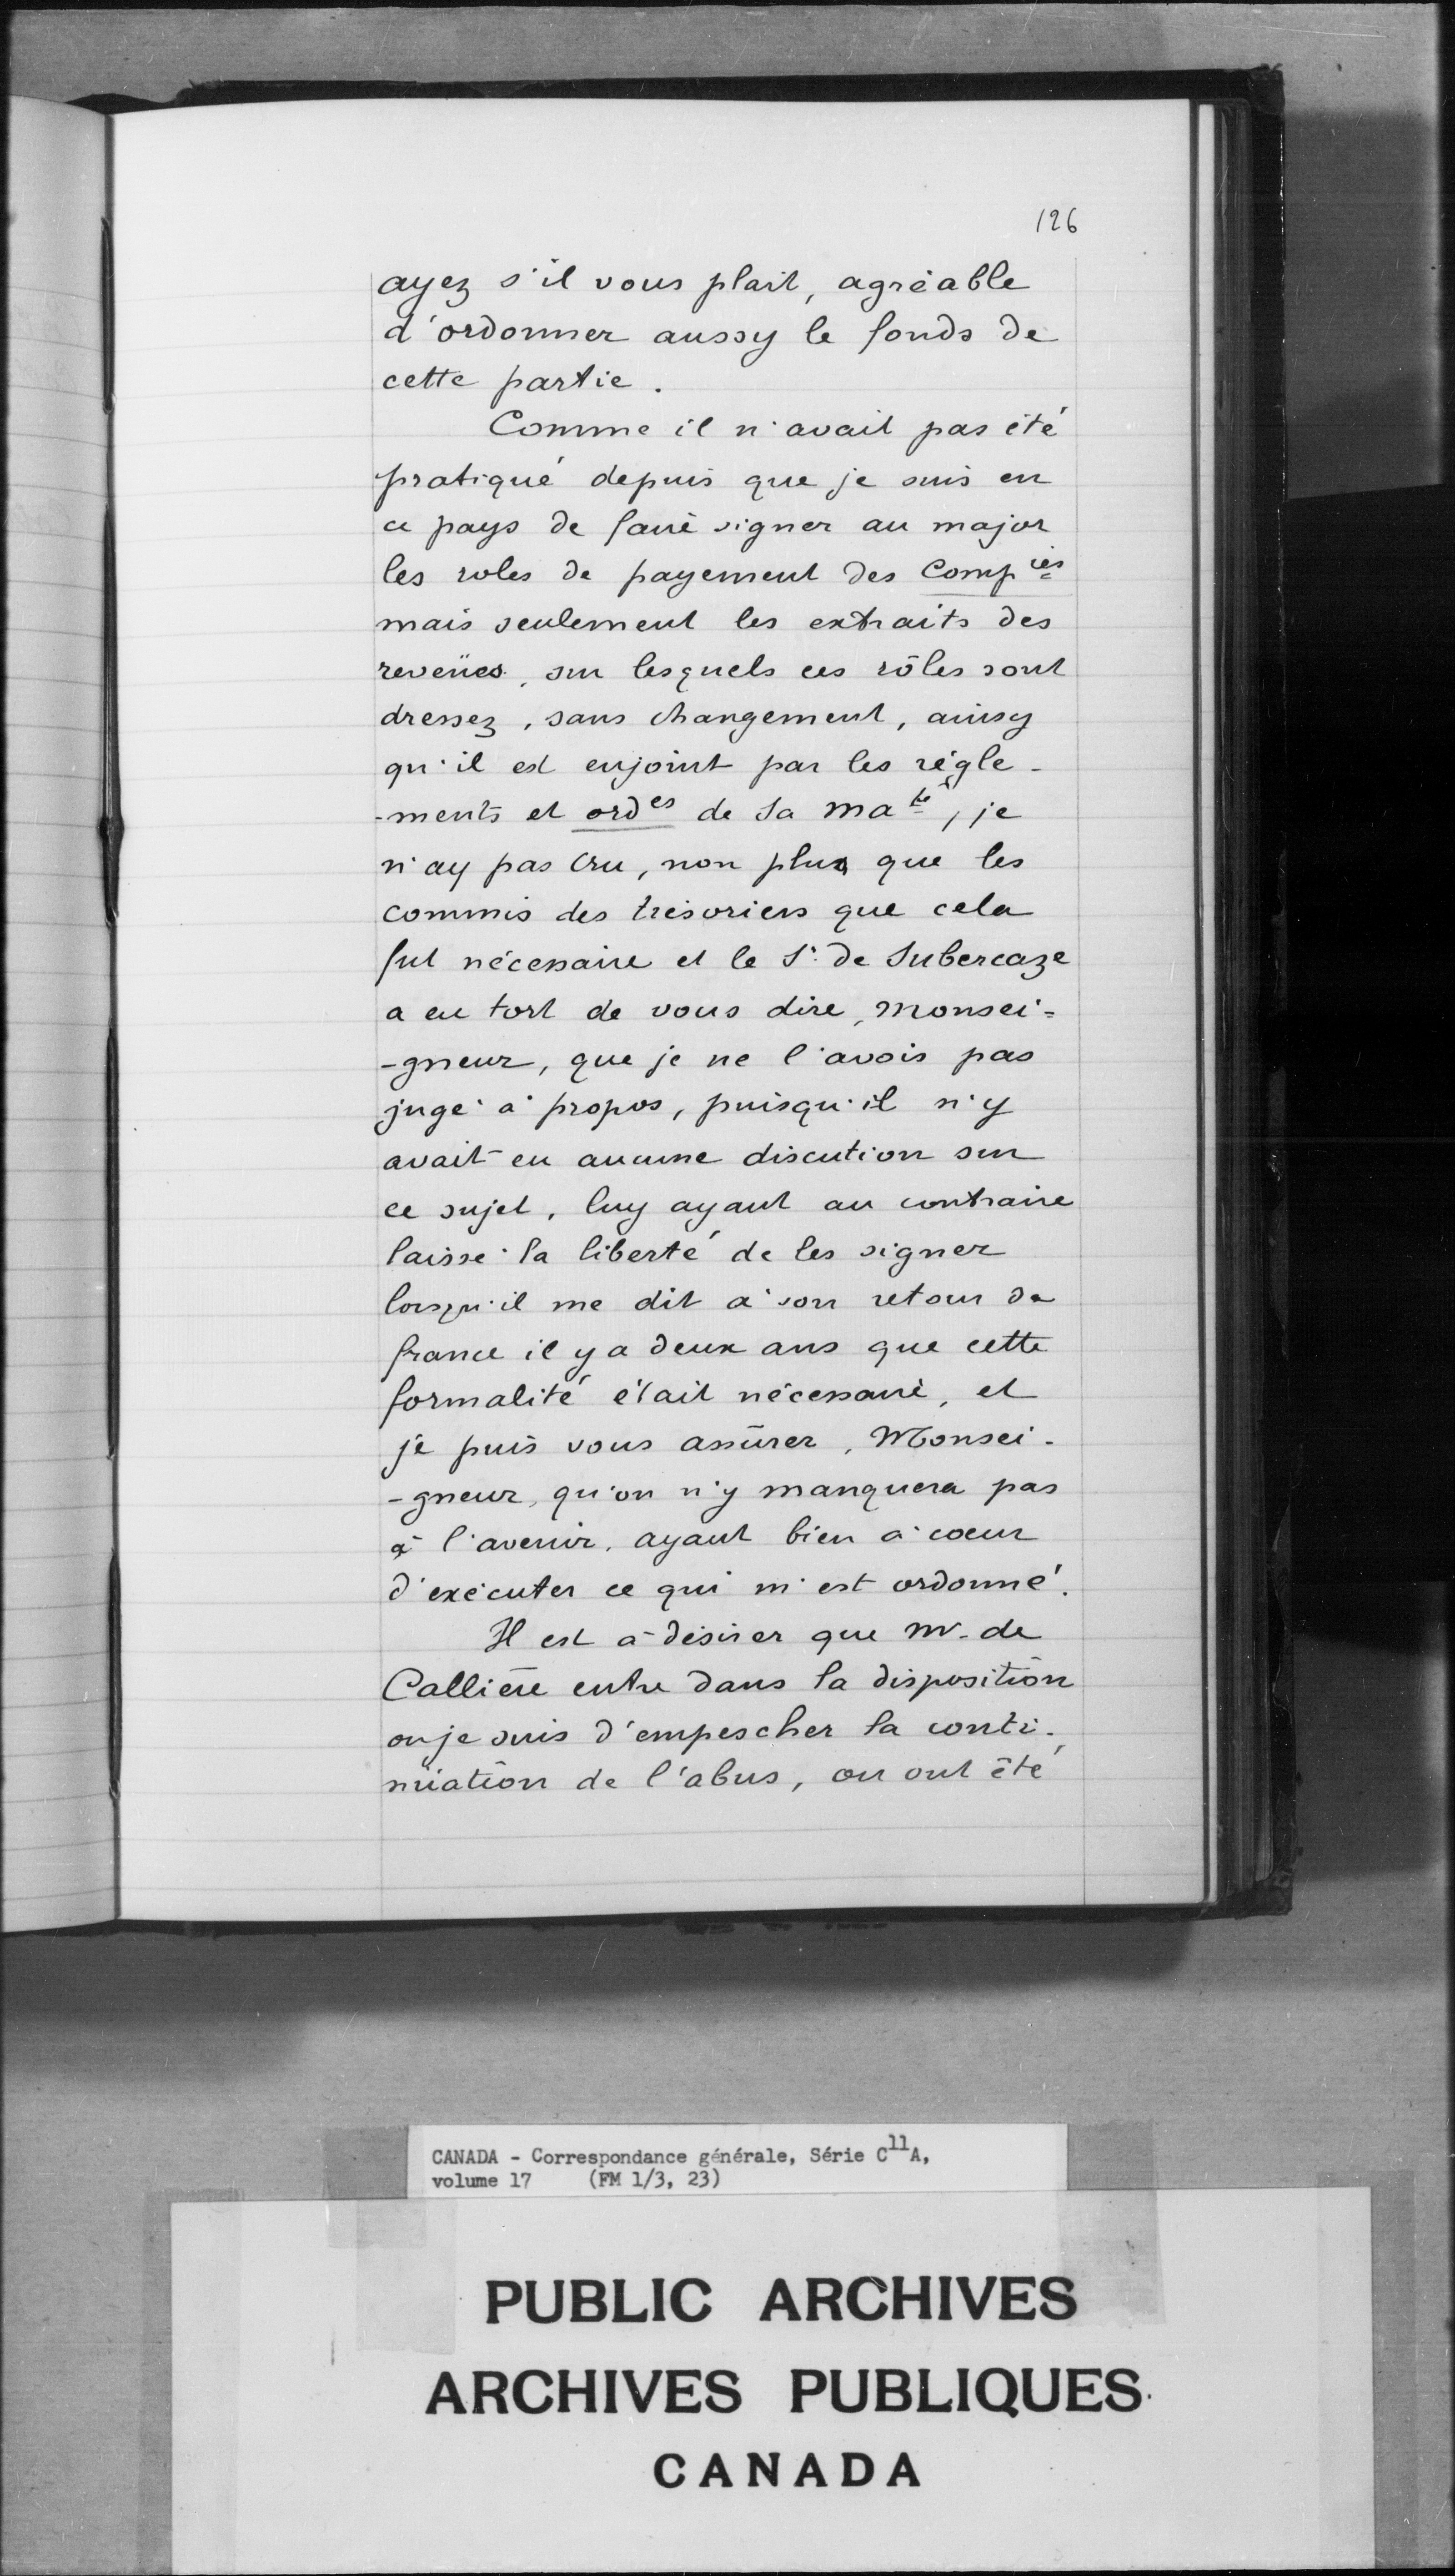 126
ayez s'il vous plait, agréable
d'ordonner aussy le fonds de
cette partie.
Comme il n'avait pas été
pratiqué depuis que je suis en
ce pays de faire signer au major
les roles de payement des Comp ies
mais seulement les extraits des
reveües, sur lesquels ces rôles sont
dressez, sans changement, ainsy
qu'il est enjoint par les régle-
-ments et ord es de Sa Ma té, je
n'ay pas cru, non plus que les
commis des trésoriers que cela
fut nécessaire et le Sr. de Subercaze
a eu tort de vous dire, Monsei=
-gneur, que je ne l'avois pas
jugé à propos, puisqu'il n'y
avait eu aucune discution sur
ce sujet, luy ayant au contraire
laissé la liberté de les signer
lorsqu'il me dit à son retour de
france il y a deux ans que cette
formalité était nécessaire, et
je puis vous assûrer, Monsei-
-gneur, qu'on n'y manquera pas
à l'avenir, ayant bien à coeur
d'exécuter ce qui m'est ordonné.
Il est à désirer que Mr. de
Callière entre dans la disposition
ou je suis d'empescher la conti-
nüation de l'abus, ou ont été
CANADA - Correspondance générale, Série C11A,
volume 17 (FM 1/3, 23)
PUBLIC ARCHIVES
ARCHIVES PUBLIQUES
CANADA